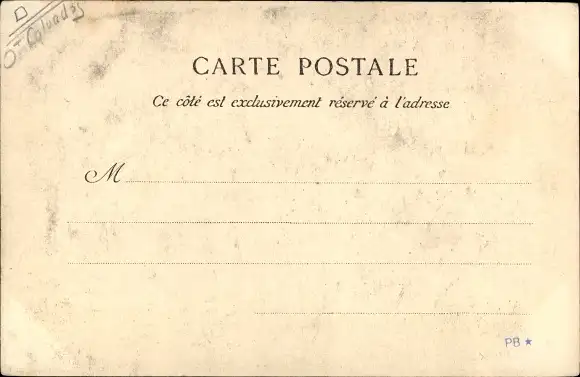 D
Calvados
CARTE POSTALE
Ce côté est exclusivement réservé à l'adresse
M
PB ★